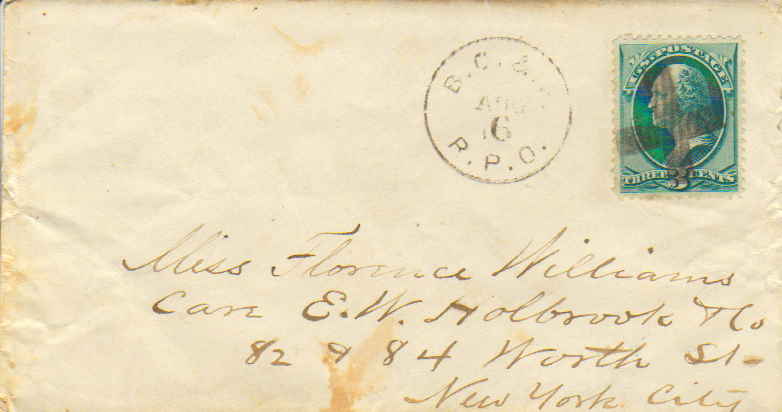 B.C. &
AUG
16
R.P.O.
U.S. POSTAGE
THREE 3 CENTS
Miss Florence Williams
Care E.W. Holbrook & Co
82 & 84 Worth St-
New York City